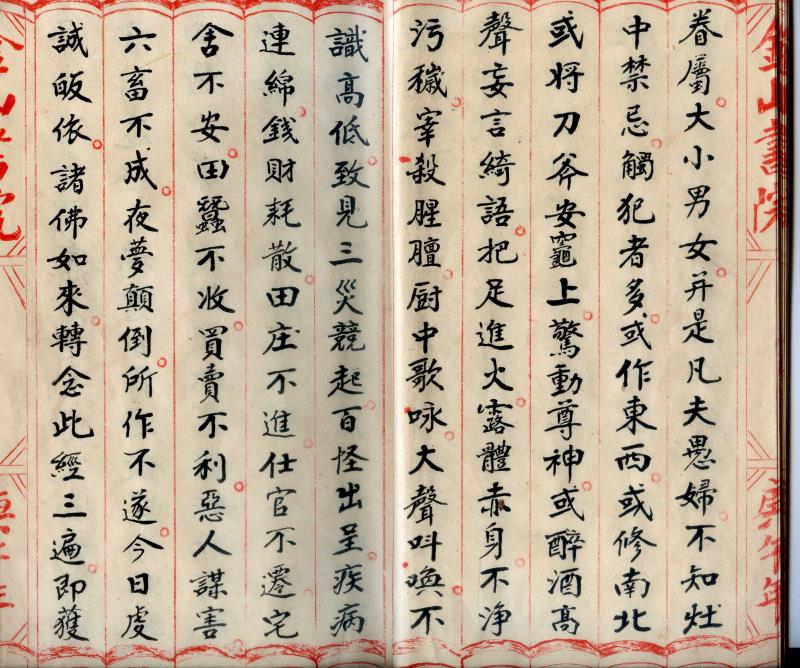 眷屬大小男女并是凡夫愚婦不知灶
中禁忌觸犯者多或作東西或修南北
或将刀斧安竈上驚動尊神或醉酒高
聲妄言綺語把足進火露體赤身不淨
污穢宰殺腥膻厨中歌咏大聲呌喚不
識高低致見三災競起百怪出呈疾病
連綿錢財耗散田庄不進仕官不遷宅
舍不安田蠶不收買賣不利惡人謀害
六畜不成夜夢顛倒所作不遂今日虔
誠皈依諸佛如來轉念此經三遍即獲